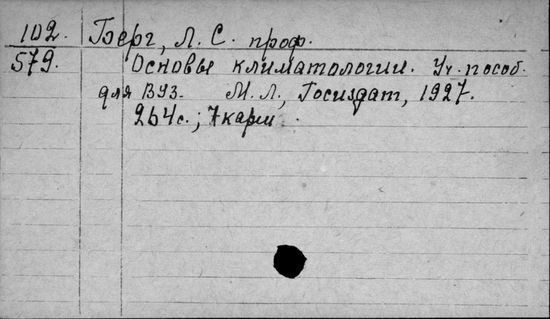 102. Берг, Л. С. проф.
579. Основы климатологии. Уч. пособ.
для ВУЗ. М. Л., Госиздат, 1927.
264 с.; 7 карт.